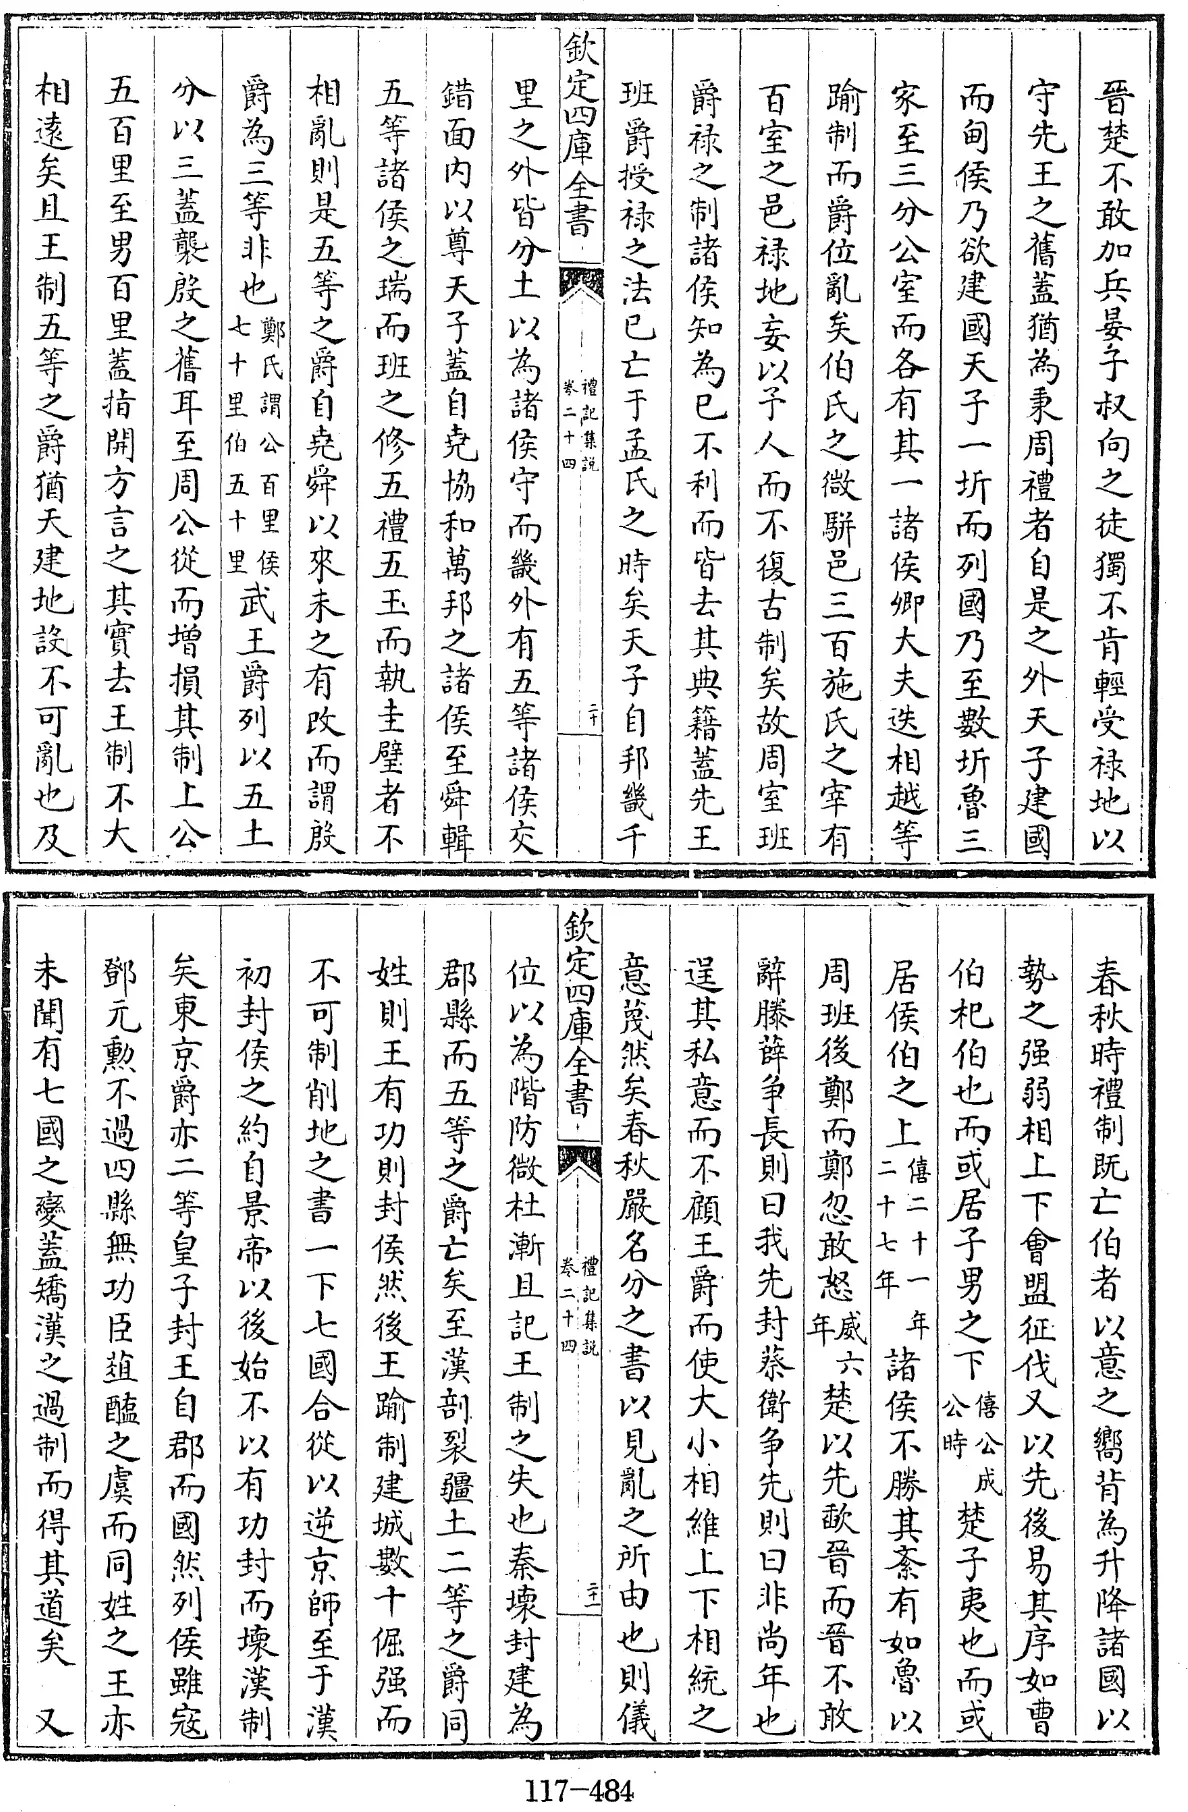 晉楚不敢加兵晏子叔向之徒獨不肯輕受禄地以
守先王之舊蓋猶為秉周禮者自是之外天子建國
而甸侯乃欲建國天子一圻而列國乃至數圻魯三
家至三分公室而各有其一諸侯卿大夫迭相越等
踰制而爵位亂矣伯氏之微駢邑三百施氏之宰有
百室之邑禄地妄以予人而不復古制矣故周室班
爵禄之制諸侯知為已不利而皆去其典籍蓋先王
班爵授禄之法已亡于孟氏之時矣天子自邦畿千
欽定四庫全書
禮記集説
卷二十四
二十
里之外皆分土以為諸侯守而畿外有五等諸侯交
錯面内以尊天子蓋自堯協和萬邦之諸侯至舜輯
五等諸侯之瑞而班之修五禮五玉而執圭璧者不
相亂則是五等之爵自堯舜以來未之有改而謂殷
爵為三等非也鄭氏謂公百里侯七十里伯五十里武王爵列以五土
分以三蓋襲殷之舊耳至周公從而增損其制上公
五百里至男百里蓋指開方言之其實去王制不大
相遠矣且王制五等之爵猶天建地設不可亂也及
春秋時禮制既亡伯者以意之嚮背為升降諸國以
勢之强弱相上下會盟征伐又以先後易其序如曹
伯杞伯也而或居子男之下僖公成公時楚子夷也而或
居侯伯之上僖二十一年二十七年諸侯不勝其紊有如魯以
周班後鄭而鄭忽敢怒威六年楚以先歃晉而晉不敢
辭滕薛争長則曰我先封蔡衛争先則曰非尚年也
逞其私意而不顧王爵而使大小相維上下相統之
意蔑然矣春秋嚴名分之書以見亂之所由也則儀
欽定四庫全書
禮記集説
卷二十四
二十一
位以為階防微杜漸且記王制之失也秦壞封建為
郡縣而五等之爵亡矣至漢剖裂疆土二等之爵同
姓則王有功則封侯然後王踰制建城數十倔强而
不可制削地之書一下七國合從以逆京師至于漢
初封侯之約自景帝以後始不以有功封而壞漢制
矣東京爵亦二等皇子封王自郡而國然列侯雖寇
鄧元勲不過四縣無功臣葅醢之虞而同姓之王亦
未聞有七國之變蓋矯漢之過制而得其道矣　又
117-484